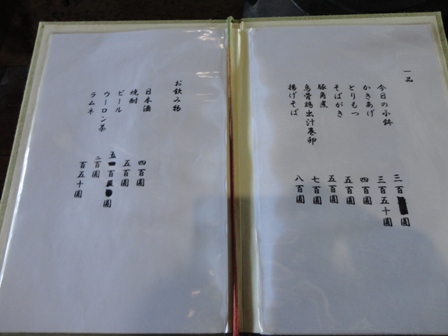 一品
今日の小鉢 三百圓
かきあげ 三百五十圓
とりもつ 四百圓
そばがき 五百圓
豚角煮 五百圓
烏骨鶏出汁巻卵 七百圓
揚げそば 八百圓
お飲み物
日本酒 四百圓
焼酎 五百圓
ビール 五百圓
ウーロン茶 二百圓
ラムネ 百五十圓